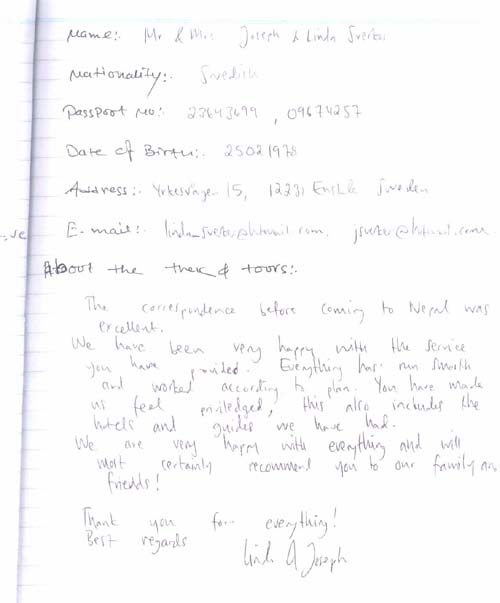 Name:. Mr & Mrs. Joseph & Linda Svertos
Nationality:. Swedish
Passport No:. 23643699, 09674257
Date of Birth:. 25021978
Address:. Yrkesvägen 15, 12231 Sweden
E-mail:.
About the trek & tours:.
The correspondence before coming to Nepal was
excellent.
We have been very happy with the service
you have provided. Everything has run smooth
and worked according to plan. You have made
us feel priviledged, this also includes the
hotels and guides we have had.
We are very happy with everything and will
most certainly recommend you to our family an
friends!
Thank you for everything!
Best regards
Linda & Joseph